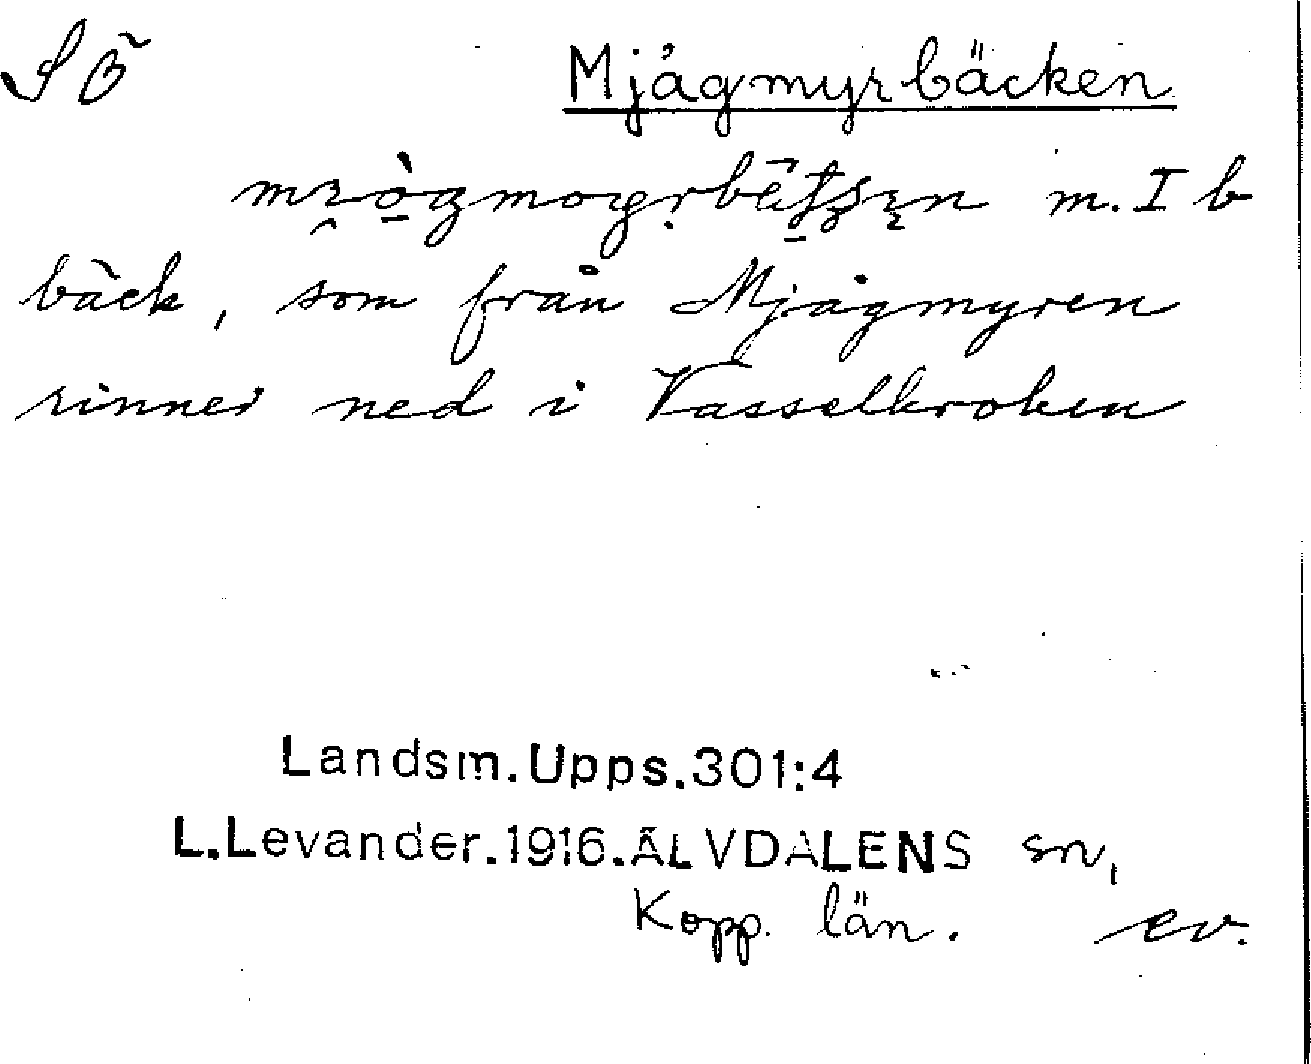 Mjågmyrbäcken
m. I b
bäck, som från Mjågmyren
rinner ned i Vasselkroken
Landsm.Upps.301:4
L.Levander.1916.ÄLVDALENS sn,
Kopp. län. ev.